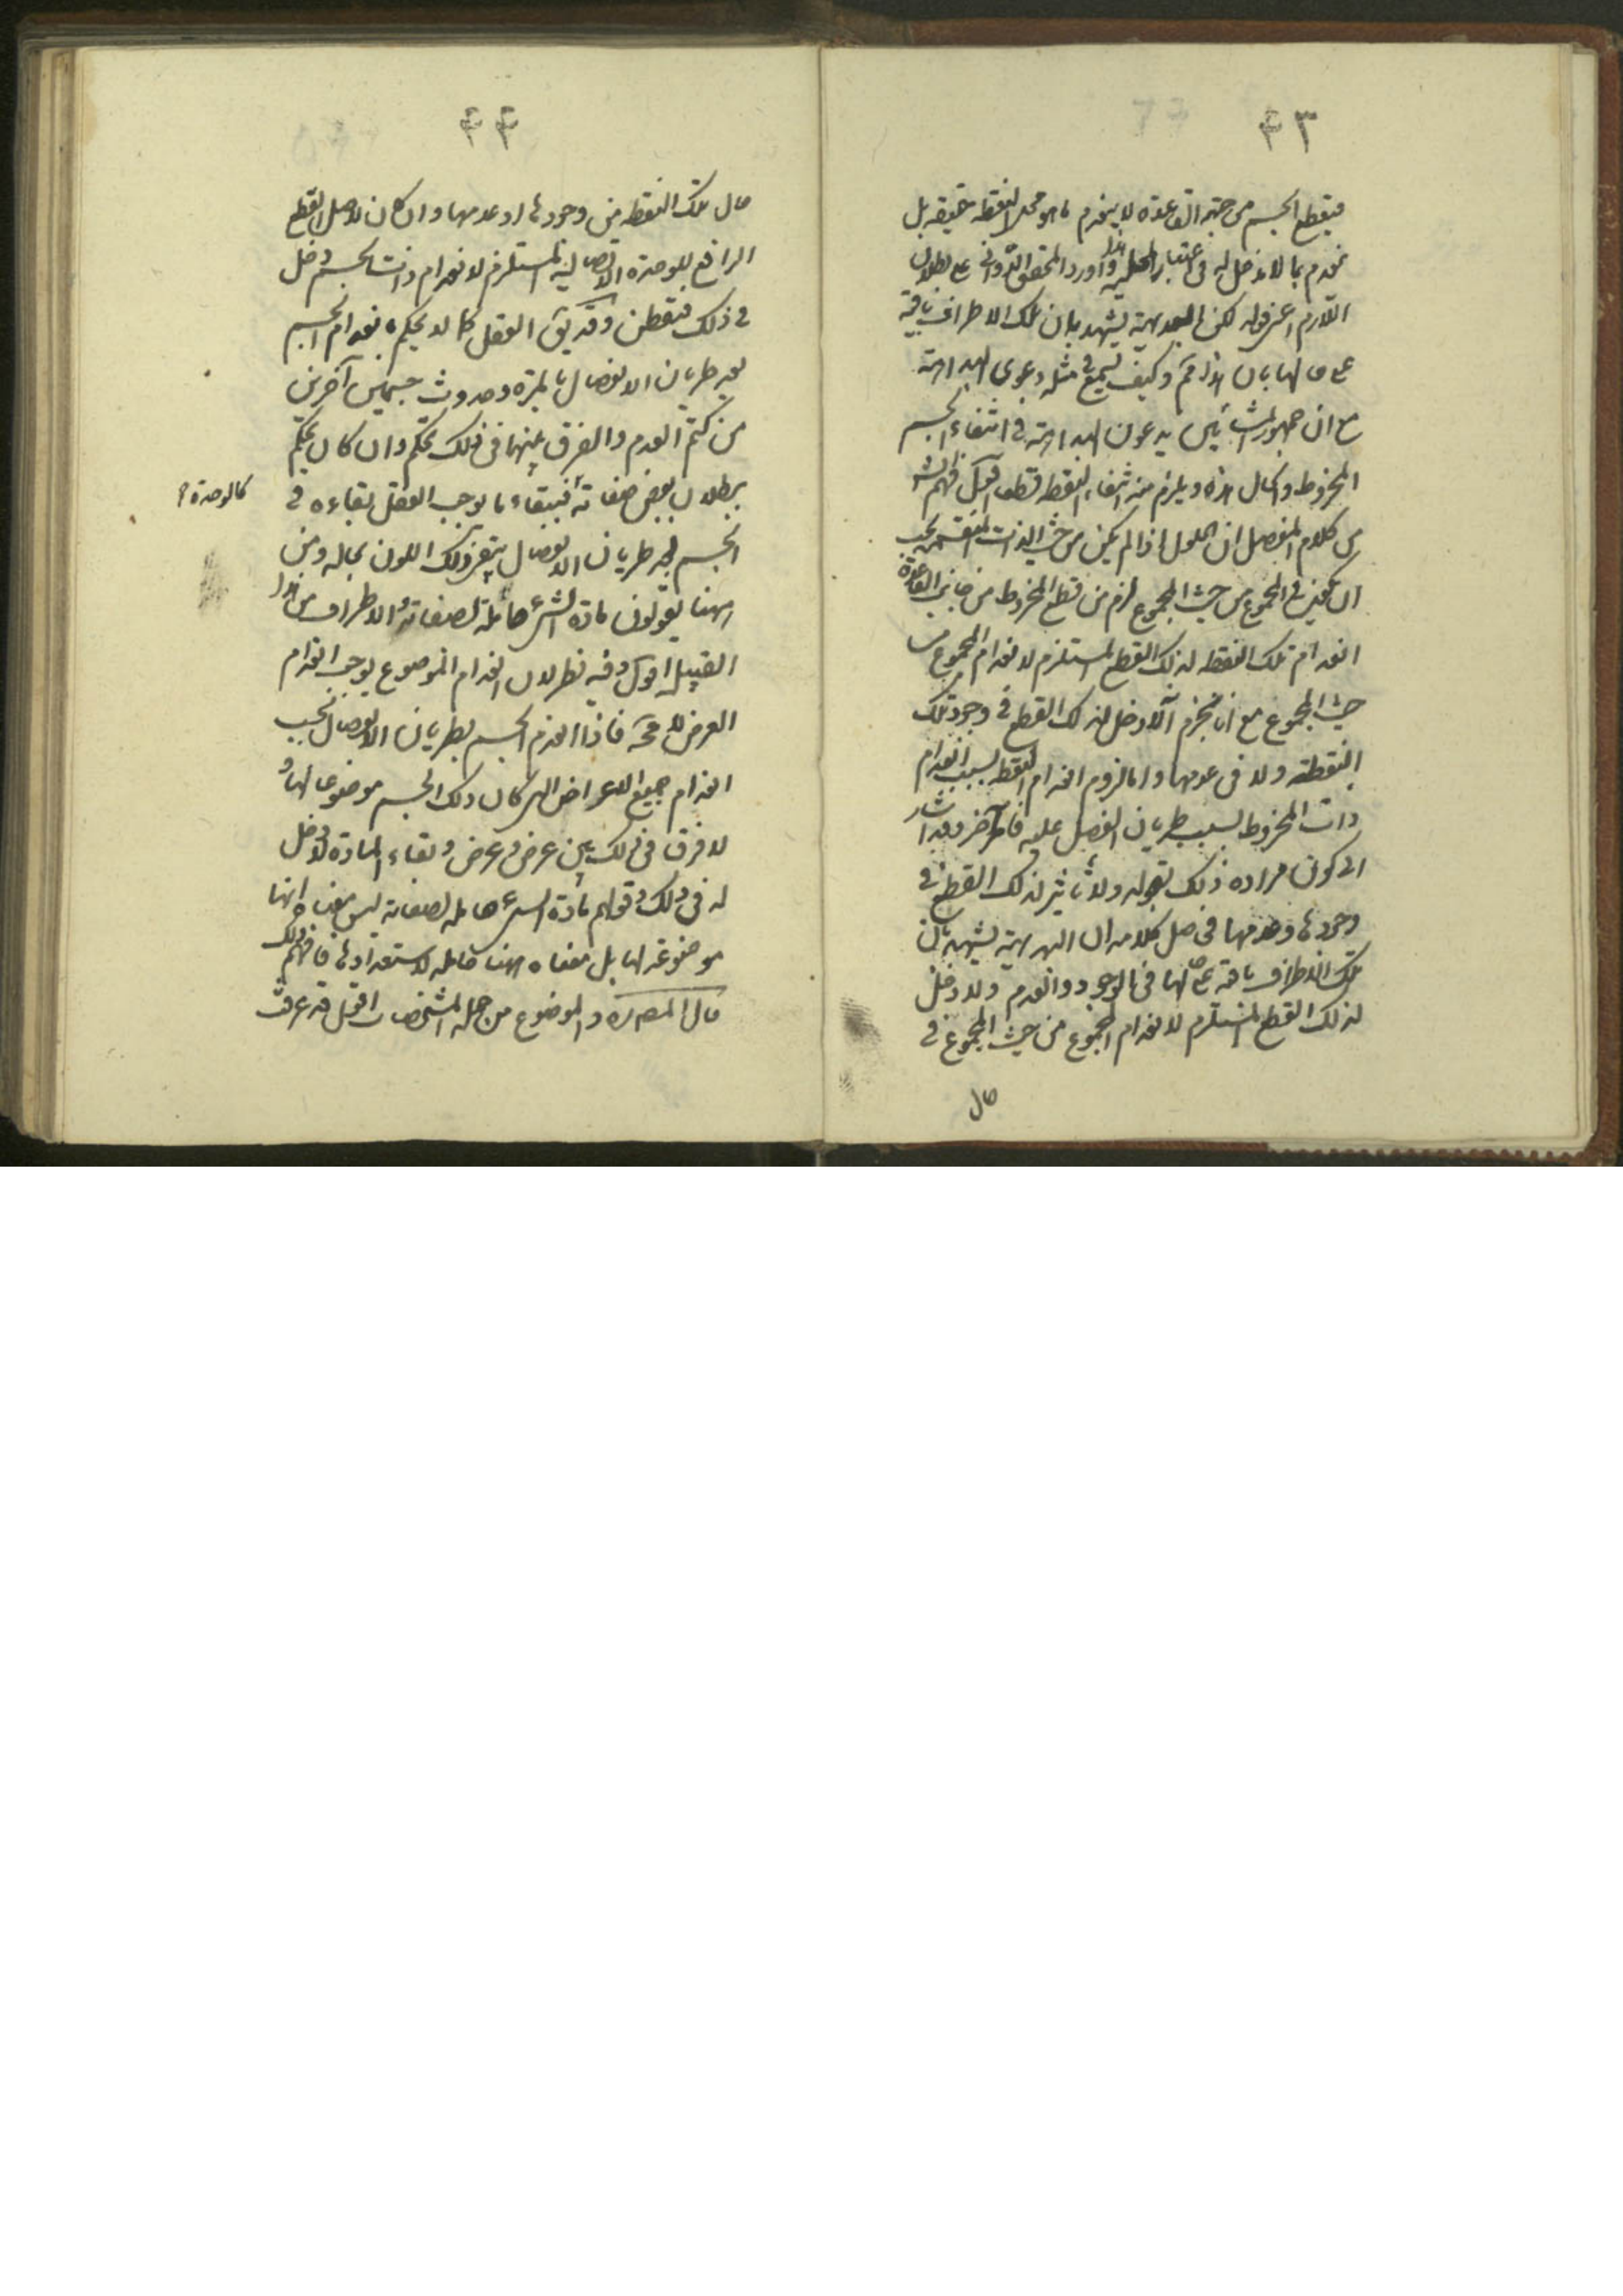 ٤٣
فيقطع الجسم من جهة القاعدة لا ينعدم ما هو محل النقطة حقيقة بل
ينعدم ما لا دخل له في اعتبار المحلية هذا وأورد المحقق الدواني على بطلان
اللازم اعني قوله لكن البديهة يشهد بان تلك الاطراف باقية
على حالها بان هذا مم وكيف يسمع في مثله دعوى البداهة
مع ان جمهور المشائين يدعون البداهة في انتفاء الجسم
المخروط والحال هذه ويلزم منه انتفاء النقطة قطعا اقول فهم
من كلام المفصل ان الحلول اذا لم يكن من حيث الذات المنقسمة يجب
ان يكون في المجموع من حيث المجموع لزم من قطع المخروط من جانب القاعدة
انعدام تلك النقطة لذلك القطع المستلزم لانعدام المجموع من
حيث المجموع مع انا نجزم ان لا دخل لذلك القطع في وجود تلك
النقطة ولا في عدمها واما لزوم انعدام النقطة بسبب انعدام
ذات المخروط بسبب طريان الفصل عليه فامر آخر وقد اشار
الى كون مراده ذلك بقوله ولا تأثير لذلك القطع في
وجودها وعدمها فحاصل كلامه ان البديهة يشهد بان
تلك الاطراف باقية على حالها في الوجود والعدم ولا دخل
لذلك القطع المستلزم لانعدام المجموع من حيث المجموع في
حال
٤٤
حال تلك النقطة من وجودها او عدمها وان كان لاصل القطع
الرافع للوحدة الاتصالية المستلزم لانعدام ذات الجسم دخل
في ذلك فتفطن وقد يق العقل كما لا يحكم بانعدام الجسم
بعد طريان الانفصال بالمرة وحدوث جسمين آخرين
من كتم العدم والفرق بينهما في ذلك تحكم وان كان يحكم
ببطلان بعض صفاته فببقاء ما يوجب العقل بقاءه في
كالوحدة
الجسم بعد طريان الانفصال يبقى ذلك اللون بحاله ومن
ههنا يقولون مادة الشئ حاملة لصفاته والاطراف من هذا
القبيل اقول وفيه نظر لان انعدام الموضوع يوجب انعدام
العرض لا محة فاذا انعدم الجسم بطريان الانفصال يجب
انعدام جميع الاعراض التي كان ذلك الجسم موضوعا لها و
لا فرق في ذلك بين عرض وعرض وبقاء المادة لا دخل
له في ذلك وقولهم مادة الشئ حاملة لصفاته ليس معناه انها
موضوعة لها بل معناه انها حاملة لاستعدادها فافهم ذلك
قال المصره والموضوع من جملة المشخصات اقول قد عرفت